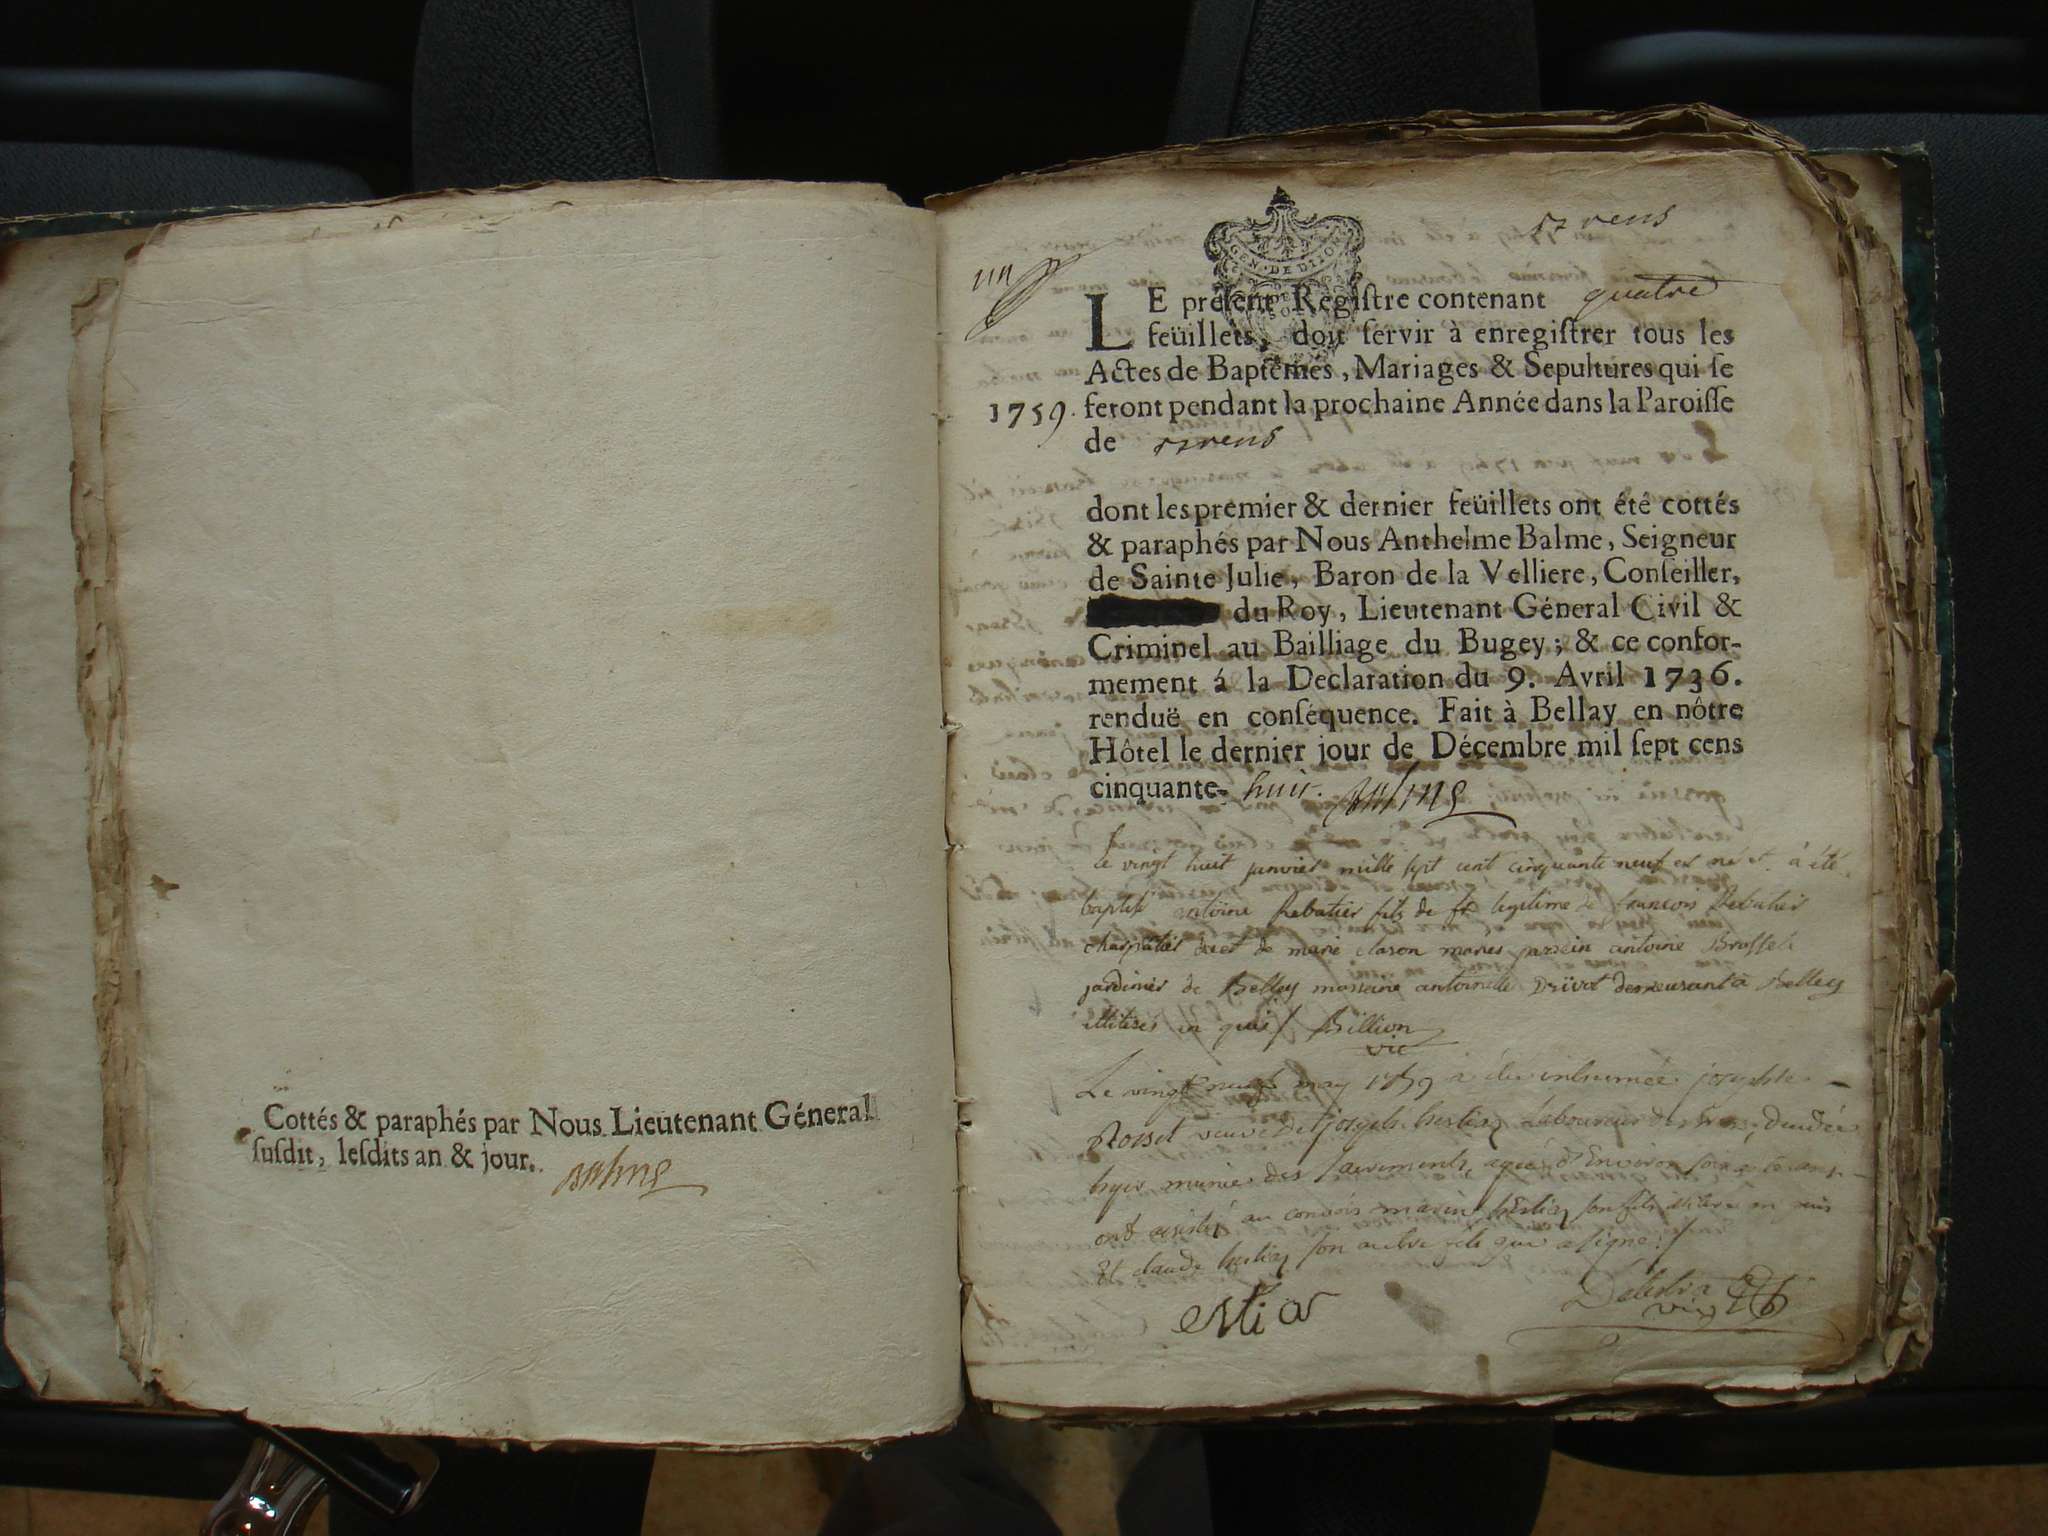 Cottés & paraphés par Nous Lieutenant Géneral
susdit, lesdits an & jour. Balme
GEN · DE DIJON
un
LE présent Registre contenant quatre
feüillets, doit servir à enregistrer tous les
Actes de Baptêmes, Mariages & Sepultures qui se
1759. feront pendant la prochaine Année dans la Paroisse
de
dont les premier & dernier feüillets ont été cottés
& paraphés par Nous Anthelme Balme, Seigneur
de Sainte Julie, Baron de la Velliere, Conseiller,
du Roy, Lieutenant Géneral Civil &
Criminel au Bailliage du Bugey; & ce confor-
mement á la Declaration du 9. Avril 1736.
renduë en conséquence. Fait à Bellay en nôtre
Hôtel le dernier jour de Décembre mil sept cens
cinquante- huit. Balme
Le vingt huit janvier mille sept cent cinquante neuf est né et à été
baptisé antoine Rebatier fils de legitime de francois Rebatier
et de marie claron mariés parrein antoine
jardinier de Belley marreine antoinette demeurant a Belley
illiterés en quis / Billion
vic
Le vingt neuf may 1759 a été inhumée josephte
Rosset veuve de joseph hestier laboureur décedée
hyer munie des sacrements, agée d'Environ soixante ans
ont assisté au convois marin hestier son fils illiteré en quis
Et claude hestier son autre fils qui a signé. /
estier
vic